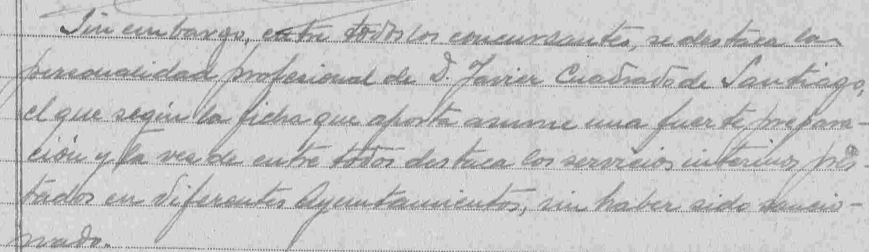 Sin embargo, entre todos los concursantes, se destaca la
personalidad profesional de D. Javier Cuadrado de Santiago,
el que según la ficha que aporta asume una fuerte prepara-
ción y la vez de entre todos destaca los servicios interinos pres-
tados en diferentes Ayuntamientos, sin haber sido sancio-
nado.